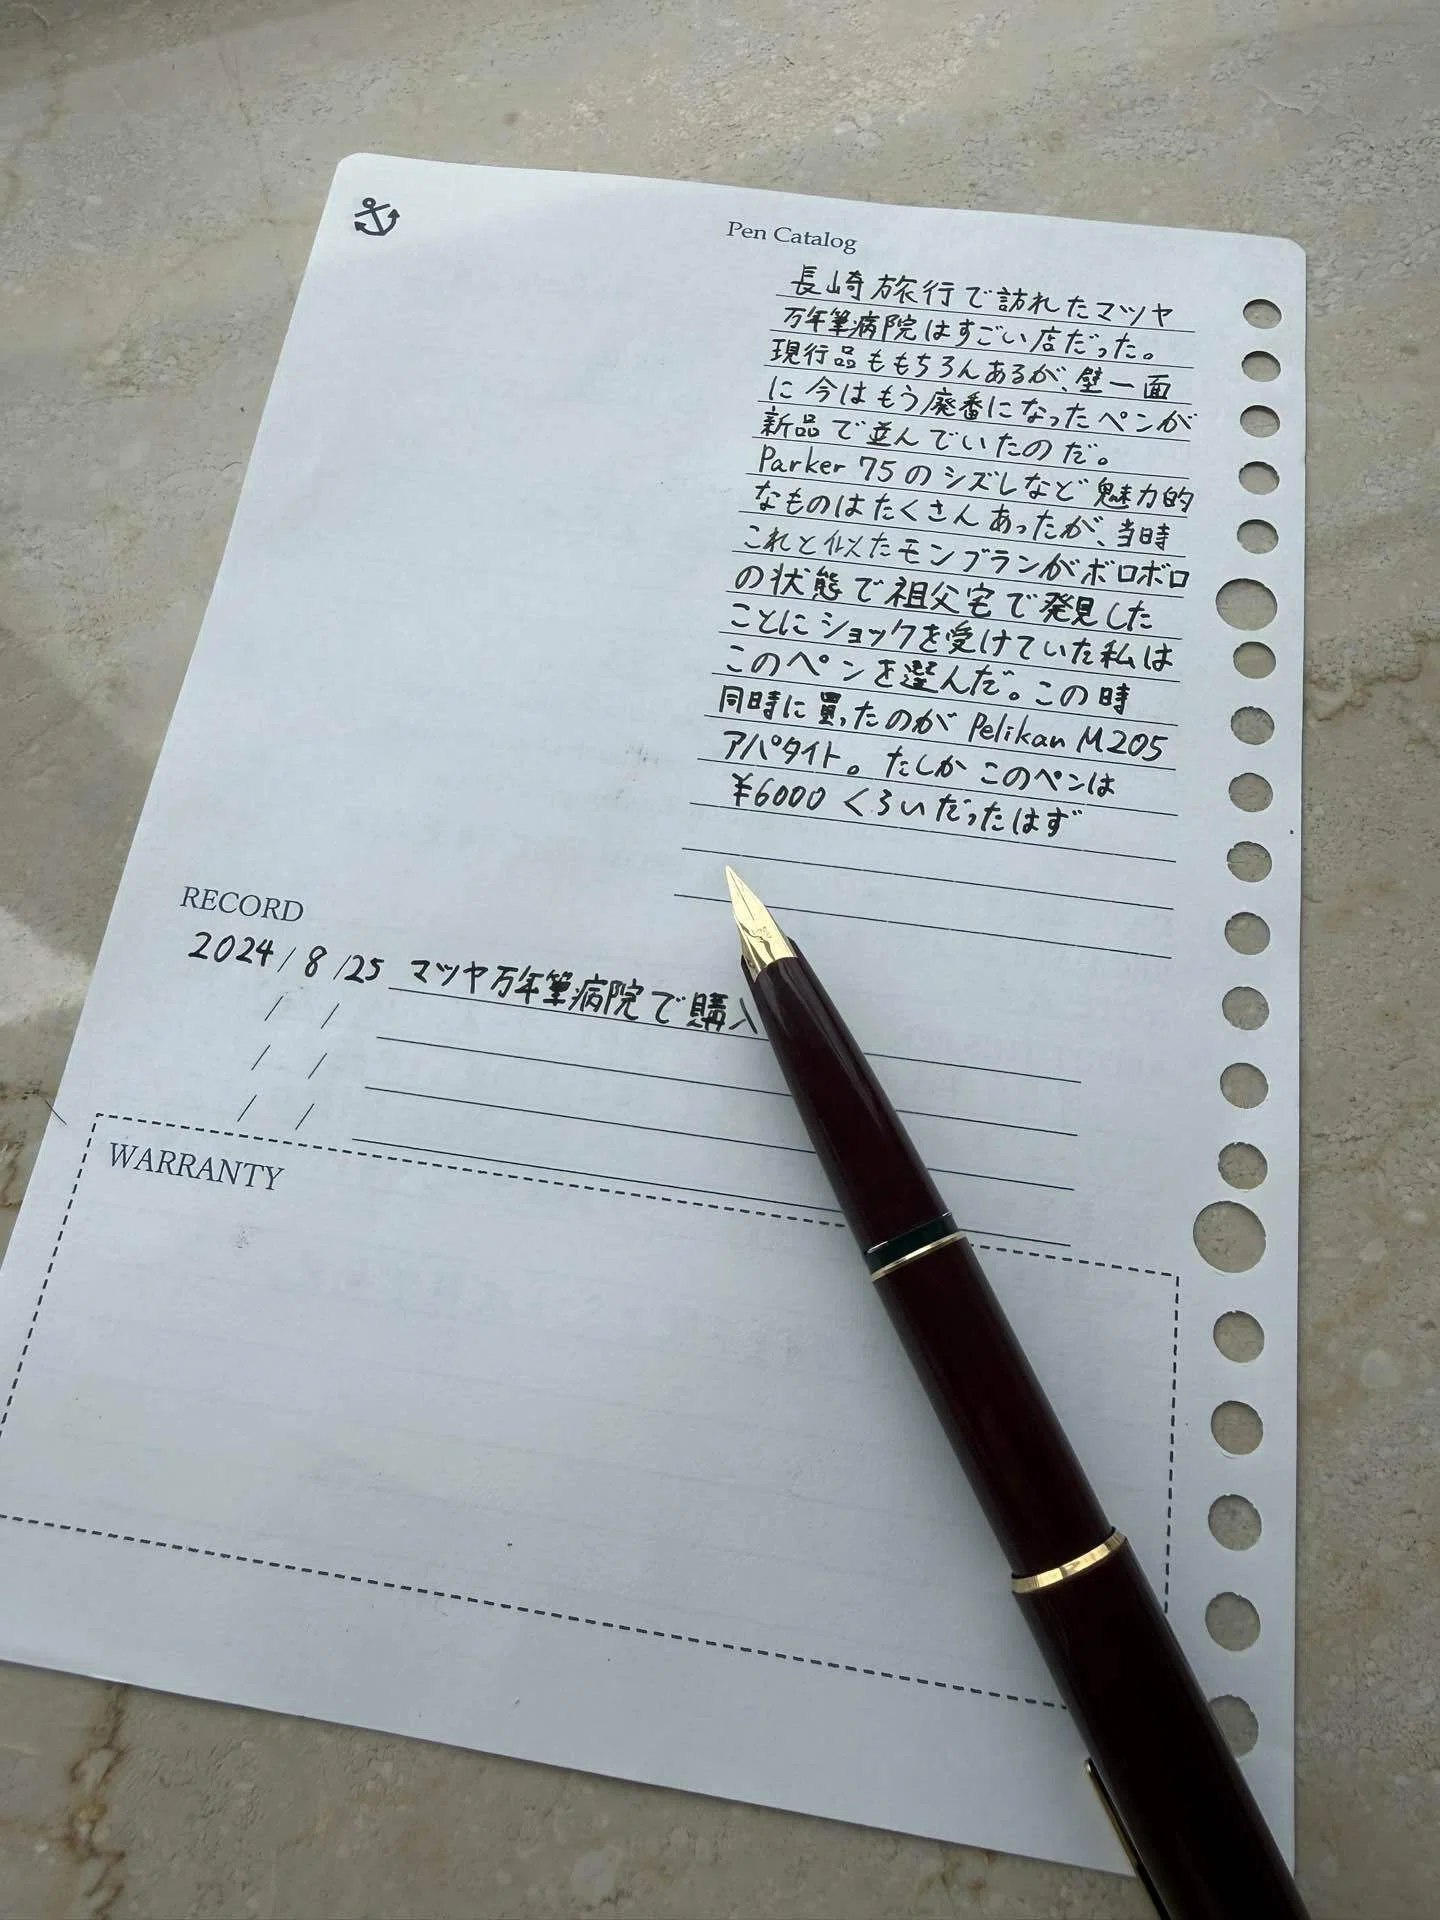 Pen Catalog
長崎旅行で訪れたマツヤ
万年筆病院はすごい店だった。
現行品ももちろんあるが、壁一面
に今はもう廃番になったペンが
新品で並んでいたのだ。
Parker 75のシズレなど魅力的
なものはたくさんあったが、当時
これと似たモンブランがボロボロ
の状態で祖父宅で発見した
ことにショックを受けていた私は
このペンを選んだ。この時
同時に買ったのがPelikan M205
アパタイト。たしかこのペンは
¥6000くらいだったはず
RECORD
2024/8/25 マツヤ万年筆病院で購入
/ /
/ /
/ /
WARRANTY